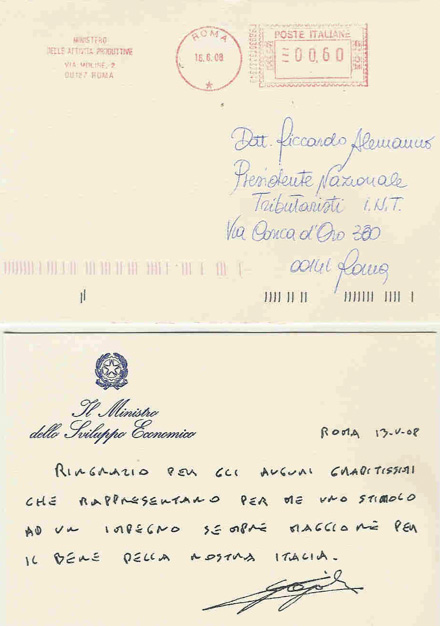 MINISTERO
DELLE ATTIVITÀ PRODUTTIVE
VIA MOLISE, 2
00187 ROMA
ROMA
16.6.08
POSTE ITALIANE
00,60
Dott. Riccardo Alemanno
Presidente Nazionale
Tributaristi I.N.T.
Via Conca d'Oro 380
00141 Roma
Il Ministro
dello Sviluppo Economico
ROMA 13-V-08
RINGRAZIO PER GLI AUGURI GRADITISSIMI
CHE RAPPRESENTANO PER ME UNO STIMOLO
AD UN IMPEGNO SEMPRE MAGGIORE PER
IL BENE DELLA NOSTRA ITALIA.